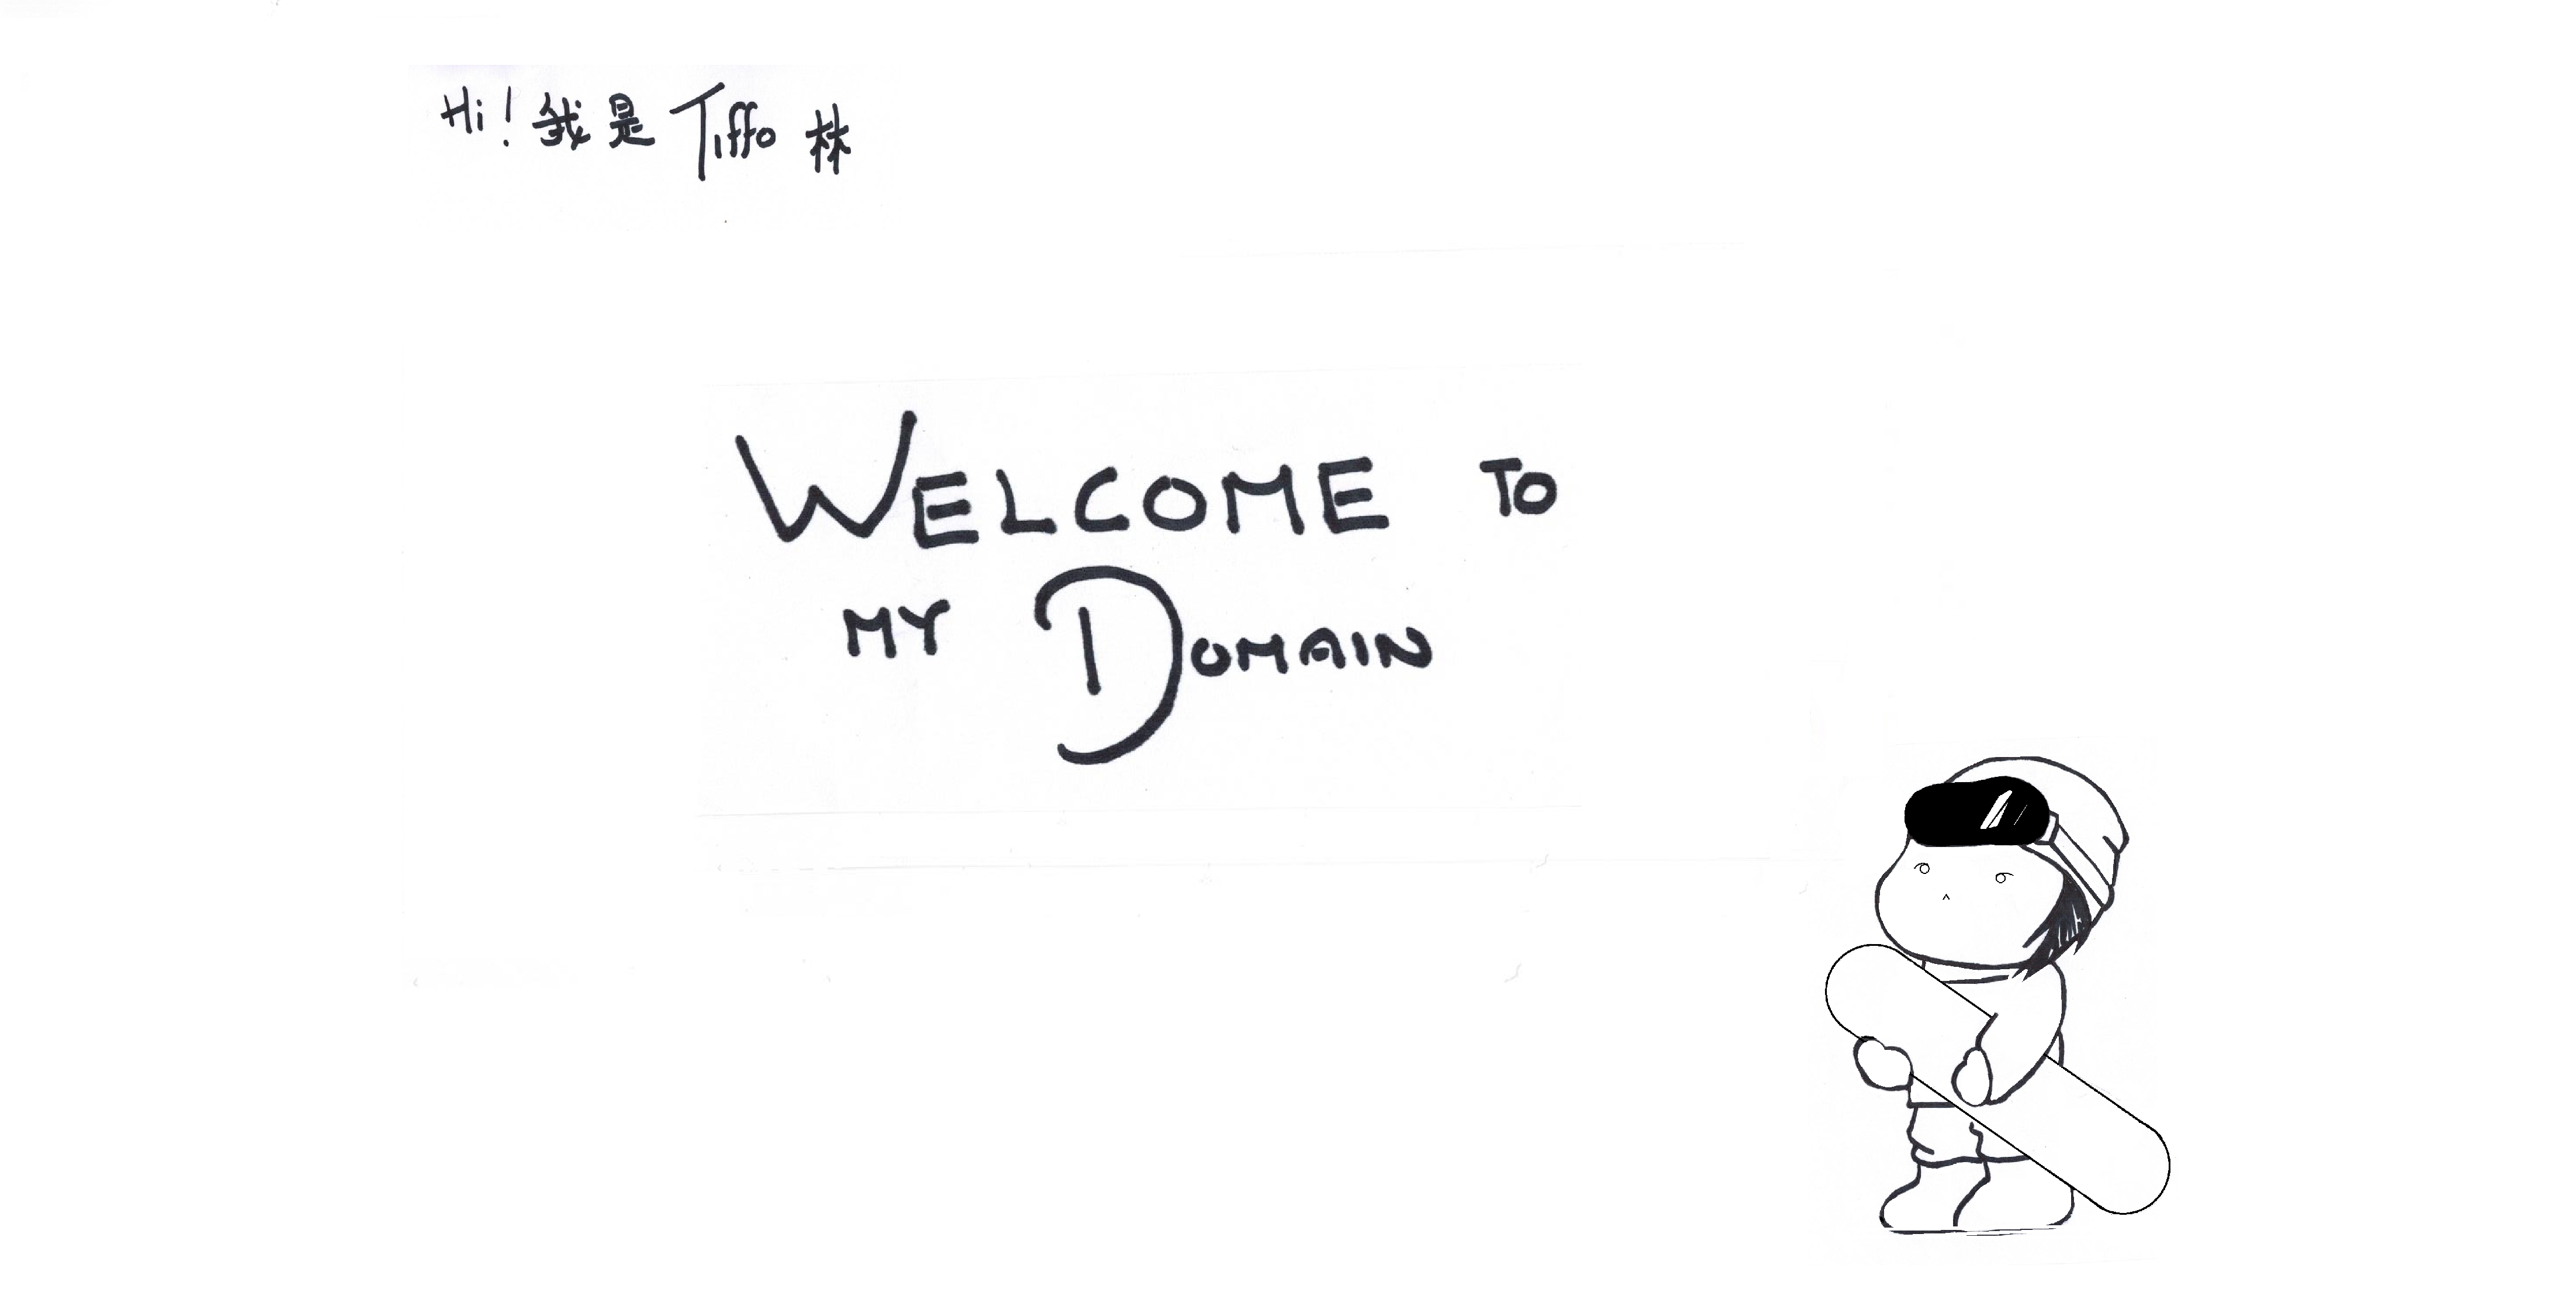 Hi! 我是 Tiffo 林
WELCOME TO
MY DOMAIN